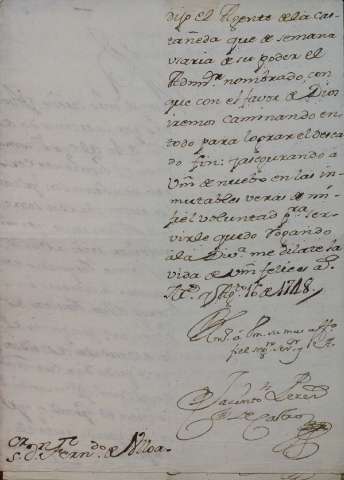 dijo el Agente de la Cas-
tañeda que de semana
viaria de su poder el
Admr. nombrado, con
que con el favor de Dios
iremos caminando en
todo para lograr el desea-
do fin: y asegurando à
Vm de nuebo en las in-
mutables veras de mi
fiel voluntad pra ser-
virle quedo rogando
à la Diva. me dilate la
vida de Vm felices as.
y Agto 16 de 1748
B. l. m. de Vm su mas
fiel segro servr
Jacinto Perez
de Castro
Sr. Dr. Ferndo. de Ulloa.